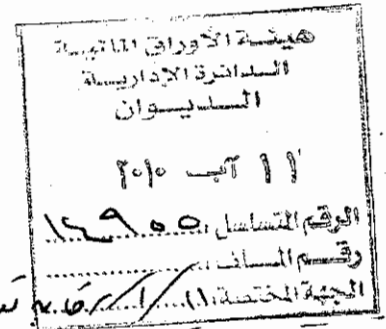 هيئة الأوراق المالية
الدائرة الإدارية
الديوان
١١ آب ٢٠١٠
الرقم المتسلسل: ١٤٩٥٥
رقم الملف:
الجهة المختصة: